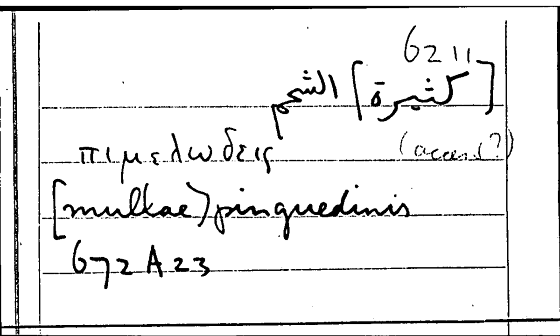 6211
[كثيرة] الشحم
πιμελωδεις (accus.?)
[multae) pinguedinis
672 A 23